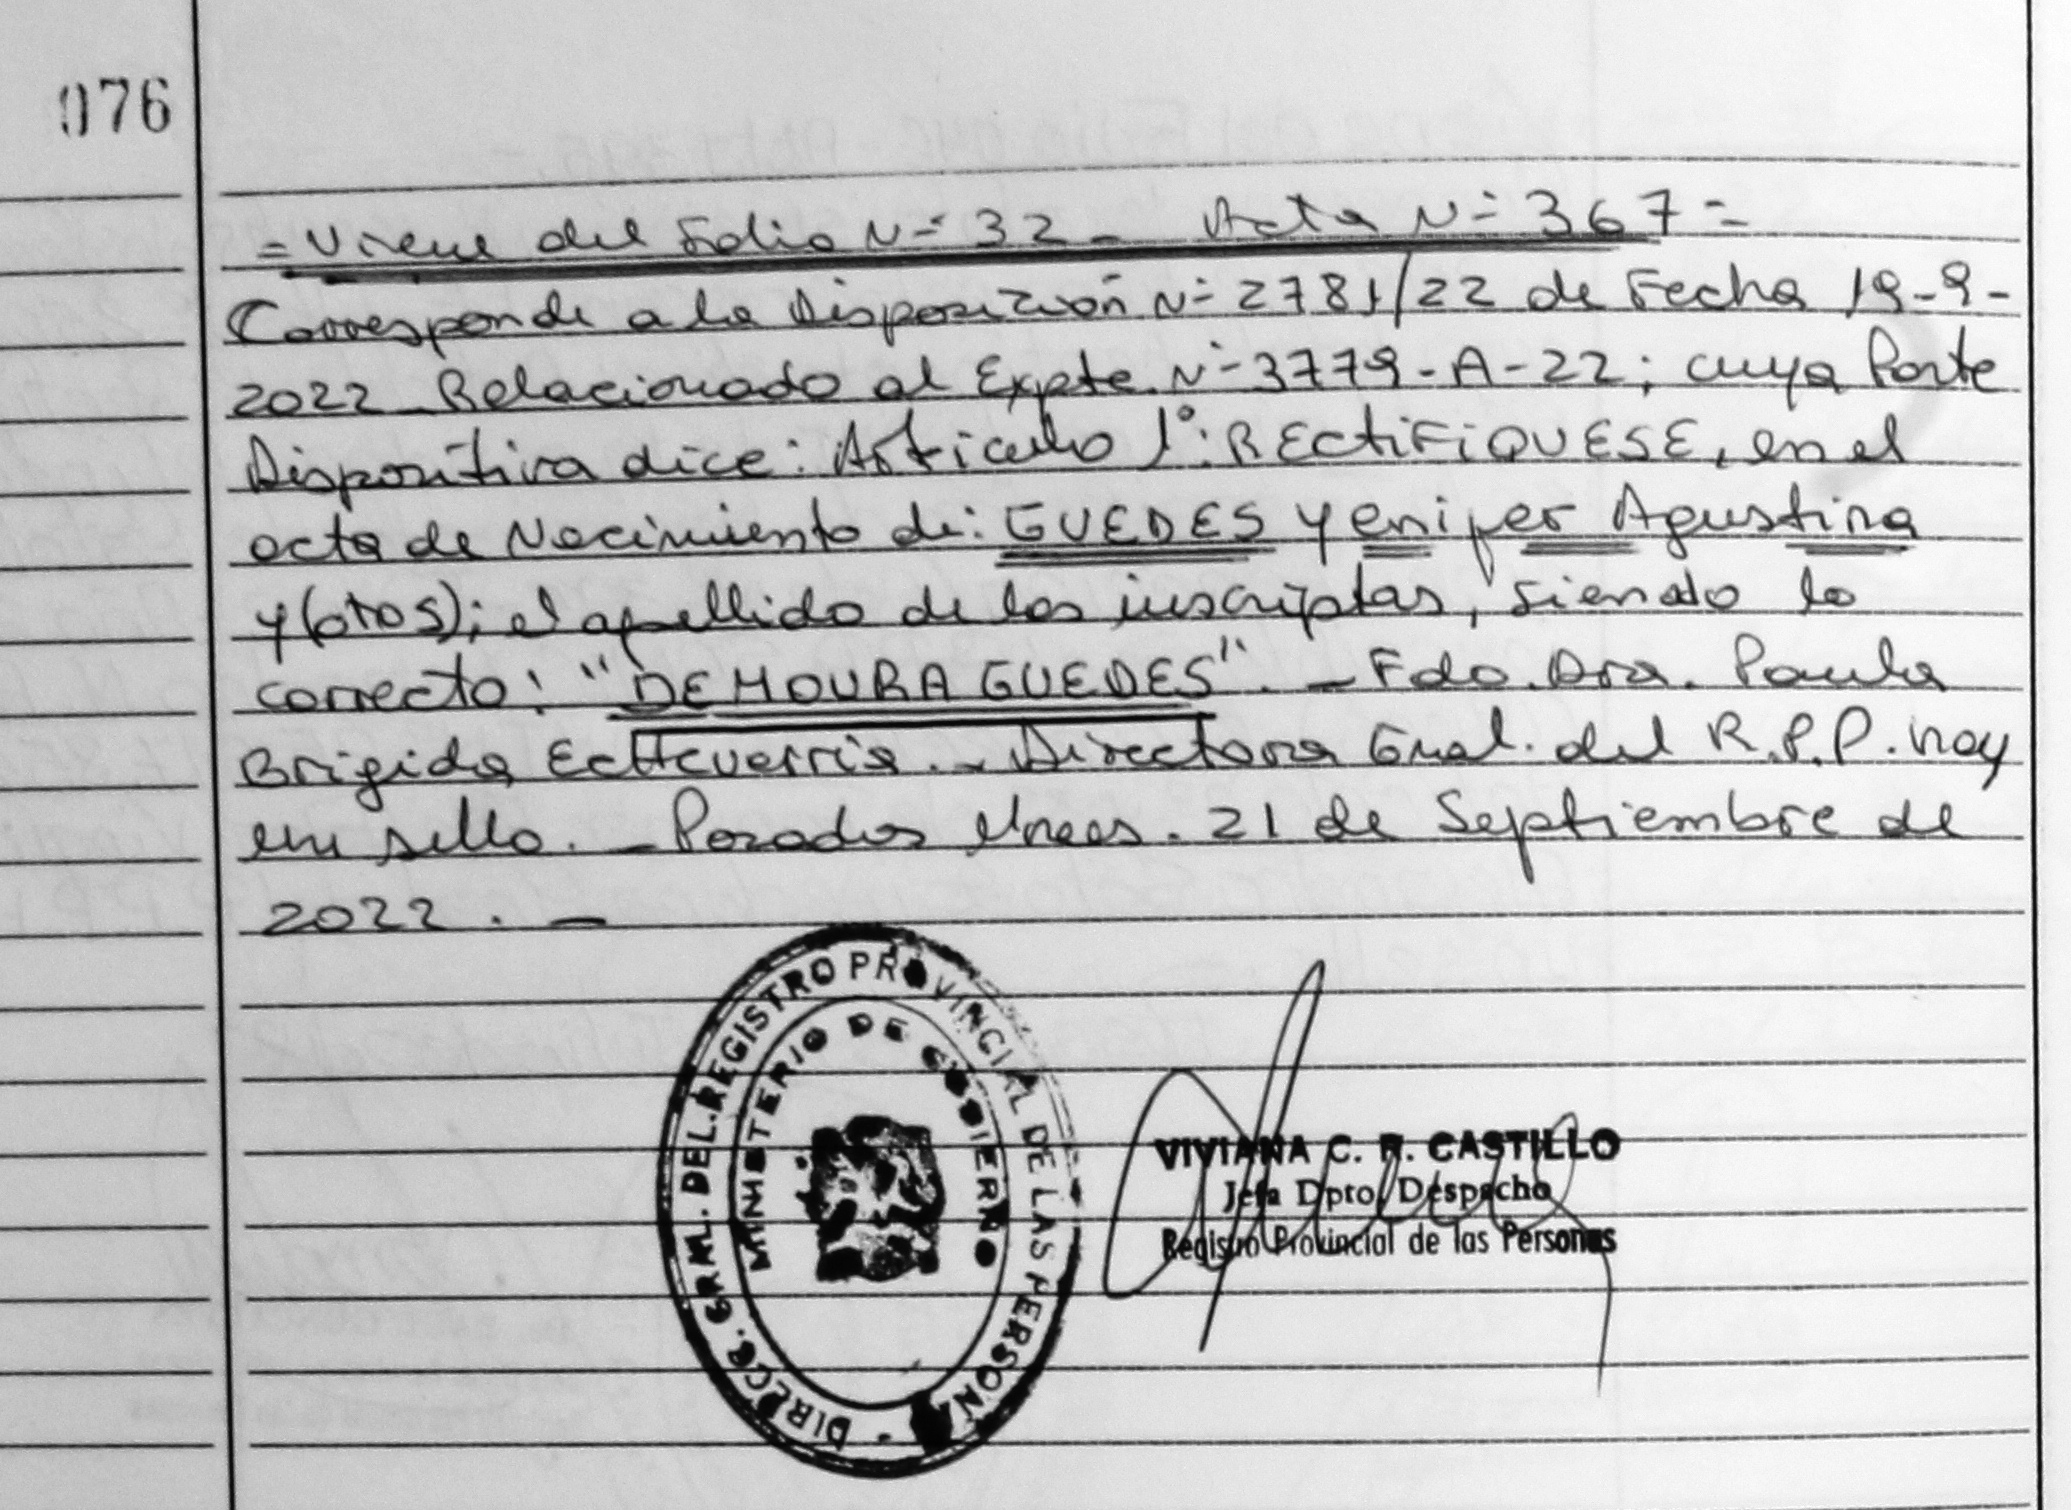 076
= Viene del Folio N= 32 - Acta N= 367 =
Corresponde a la Disposición N= 2781/22 de Fecha 19-9-
2022 Relacionado al Expte. N= 3779-A-22; cuya Parte
Dispositiva dice: Artículo 1°: RECTIFIQUESE, en el
acta de Nacimiento de: GUEDES Yenifer Agustina
y (otros); el apellido de las inscriptas, siendo lo
correcto: "DE MOURA GUEDES". - Fdo. Dra. Paula
Brigida Echeverria. - Directora Gral. del R.P.P. hay
un sello. - Posadas Mnes. 21 de Septiembre de
2022. -
DIRECC. GRAL. DEL REGISTRO PROVINCIAL DE LAS PERSONAS
MINISTERIO DE GOBIERNO
VIVIANA C. R. CASTILLO
Jefa Dpto. Despacho
Registro Provincial de las Personas